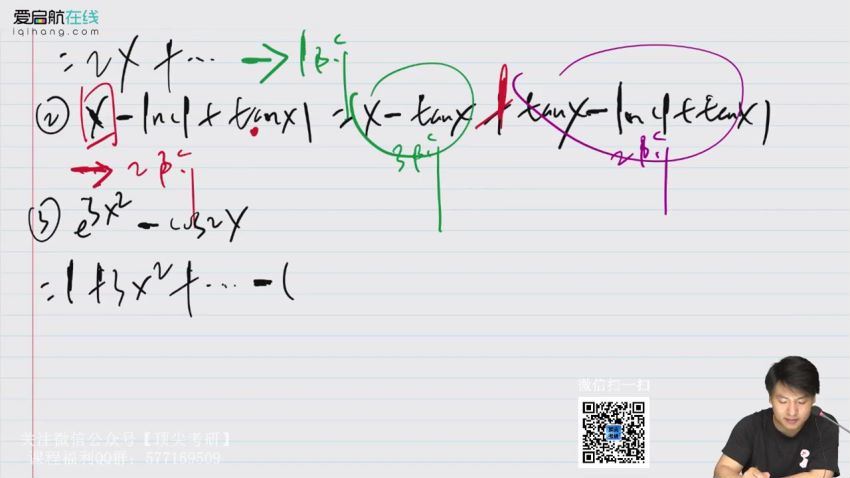 爱启航在线
iqihang.com
= 2x + ⋯ → 1阶
② x - ln(1 + tanx) = x - tanx + tanx - ln(1 + tanx)
3阶 2阶
→ 2阶
③ e^{3x^2} - cos2x
= 1 + 3x^2 + ⋯ - (
微信扫一扫
关注微信公众号【顶尖考研】
课程福利QQ群：577169509